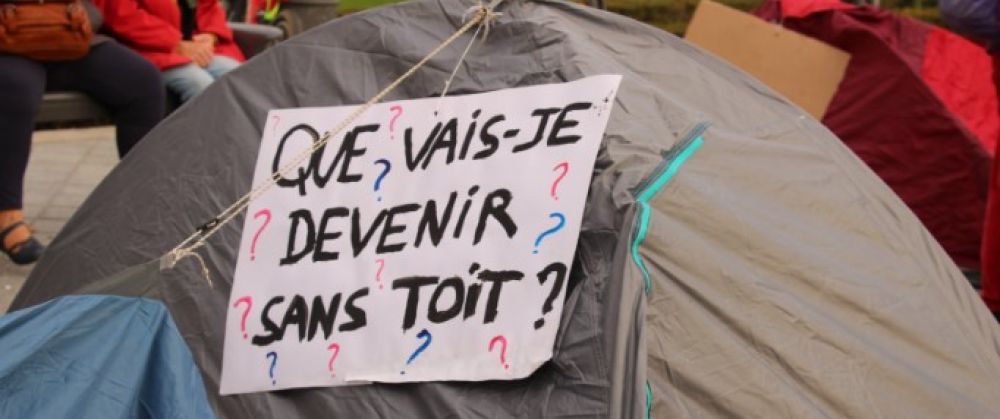 QUE VAIS-JE
DEVENIR
SANS TOiT ?